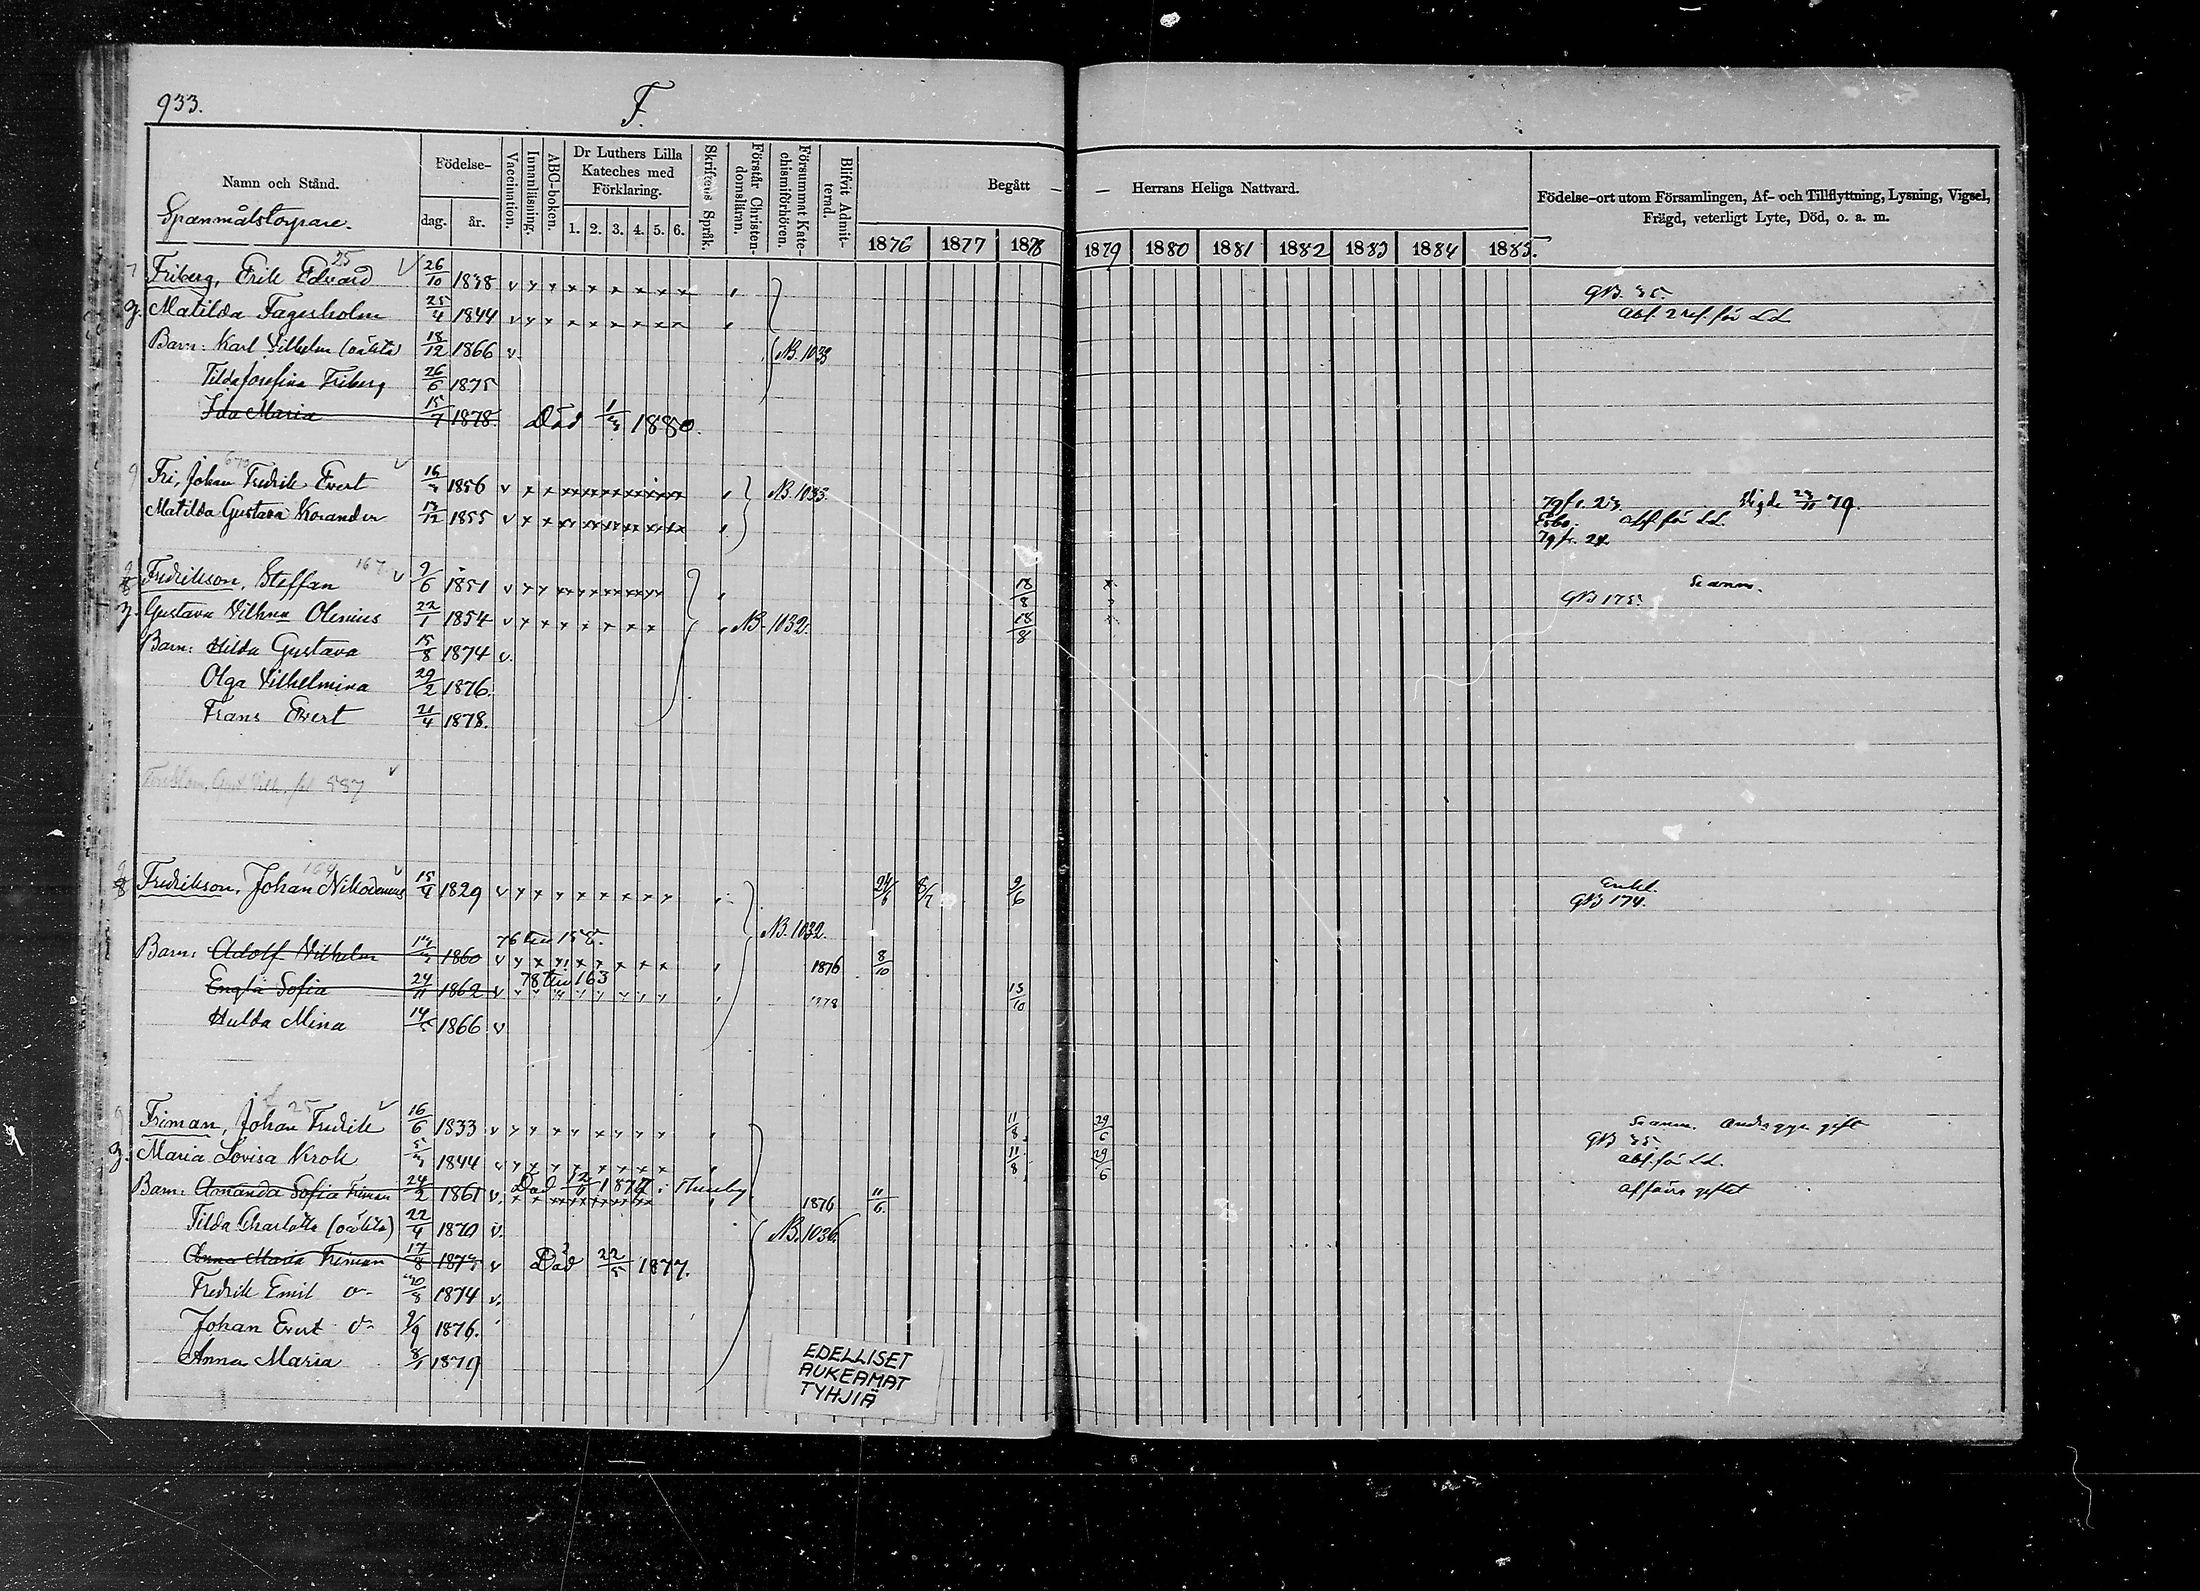 933.
F.
Namn och Stånd.
Födelse-
dag.
år.
Vaccination.
Innanläsning.
ABC-boken.
Dr Luthers Lilla Kateches med Förklaring.
1. 2. 3. 4. 5. 6.
Skriftens Språk.
Förstår Christendomsläran.
Försummat Katechismiförhören.
Blifvit Admitterad.
Begått — — Herrans Heliga Nattvard.
1876 1877 1878 1879 1880 1881 1882 1883 1884 1885.
Födelse-ort utom Församlingen, Af- och Tillflyttning, Lysning, Vigsel,
Frägd, veterligt Lyte, Död, o. a. m.
Spanmålstorpare.
25
Friberg, Erik Edvard 26/10 1838 GB. 35.
Matilda Fagerholm 25/4 1844
Barn: Karl Vilhelm (oäkta) 18/12 1866 NB. 1033
Tilda Josefina Friberg 26/6 1875
Ida Maria 15/7 1878. Död 1/3 1880.
Fri, Johan Fredrik Evert 16/3 1856 NB. 1033. Vigde 23/11 79.
Matilda Gustava Korander 1855
167
Fredrikson, Steffan 9/6 1851 18/8 GB 175.
Gustava Vilhna Olenius 22/1 1854 NB. 1032. 18/8
Barn: Hilda Gustava 15/8 1874
Olga Vilhelmina 29/2 1876.
Frans Evert 21/4 1878.
fol 587
164
Fredrikson, Johan Nikodemus 15/4 1829 24/6 8/7 9/6 Enkl. GB 174.
NB. 1032.
76 till 158.
Barn: Adolf Vilhelm 1860 1876 8/10
78 till 163
Engla Sofia 24/11 1862 1878 13/10
Hulda Mina 1866
25
Friman, Johan Fredrik 16/6 1833 11/8 29/6 andra gg. gift
GB 35.
Maria Lovisa Krok 5/3 1844 11/8 29/6
Barn: Amanda Sofia Friman 24/2 1861 Död 1877 1876 11/6
Tilda Charlotta (oäkta) 22/4 1870 NB. 1036.
Anna Maria Friman 17/8 1873 Död 22/5 1877.
Fredrik Emil 1874
Johan Evert 9/9 1876.
Anna Maria 8/1 1879
EDELLISET
AUKEAMAT
TYHJIÄ